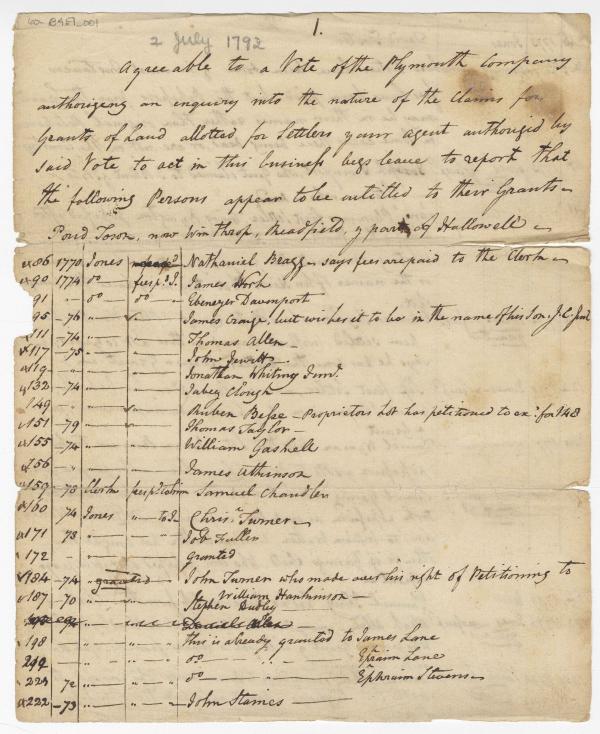 1.
2 July 1792
Agreeable to a Vote of the Plymouth Company
authorizing an enquiry into the nature of the Claims for
Grants of Land alloted for Settlers your agent authorizid by
said Vote to act in this business begs leave to report that
the following Persons appear to be entitled to their Grants
Pond Town, now Winthrop, Readfield, & part of Hallowell
86 1770 Jones Nathaniel Bragg says fees are paid to the Clerk
90 1774 do fees pd. J. James Work
91 " do do " Ebenezer Davenport
95 -76 " " James Craige, but wishes it to be in the name of his Son J. C. Junr
111 -74 " " Thomas Allen
117 -75 " " John Jewitt
119 " " " Jonathan Whiting Junr.
132 -74 " " Jabez Clough
149 " " " Ruben Besse Proprietors Lot has petitioned to ex. for 148
151 -79 " " Thomas Taylor
155 -74 " " William Gaskell
156 " " " James Atkinson
159 -70 Clerk fees pd. to him Samuel Chandler
160 74 Jones " to J. Chrisr. Turner
171 73 " " Job Fuller
172 " " " granted
184 -74 granted John Turner who made over his right of Petitioning to
William Hankinson
187 -70 " " Stephen Dudley
198 " " " this is already granted to James Lane
" " " do " " Ephraim Lane
72 " " do Ephraim Stevens
222 -73 " " John Stames